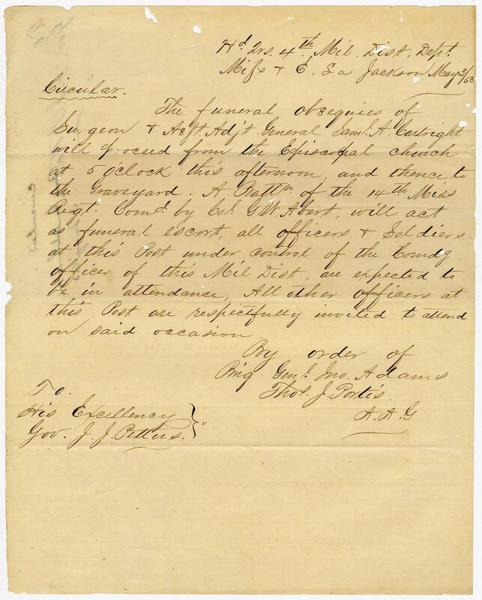 Hd Qrs. 4th Mil. Dist. Dept.
Miss & E. La Jackson May 3/63
Circular.
The funeral obsequies of
Surgeon & Act Adjt General Saml. A. Cartright
will proceed from the Episcopal church
at 5 o'clock this afternoon, and thence to
the Graveyard. A Battn of the 14th Miss
Regt. Comd. by Col. G. W. Abert, will act
as funeral escort, all officers & Soldiers
at this Post under control of the Comdg
officer of this Mil Dist, are expected to
be in attendance, All other officers at
this Post are respectfully invited to attend
on said occasion
By order of
Brig Genl. Jno. Adams
Thos. J. Portis
A. A. G
To.
His Excellency
Gov. J. J. Pettus.